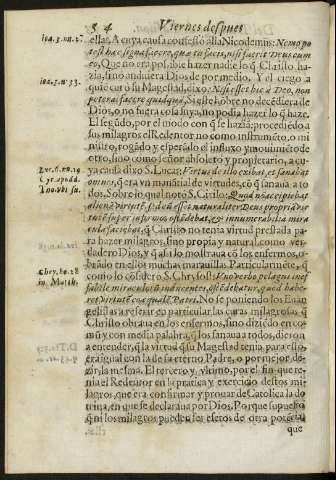 54 Viernes despues
ioa. 3. nu. 2.
ellas, A cuya causa confessò alla Nicodemus: Nemo po
test hæc signa facere, quæ tu facis, nisi fuerit Deus cum
eo, Que no era possible hazer nadie lo q̃ Christo ha-
zia, sino anduviera Dios de por medio. Y el ciego a
ioa. 9. nu. 33.
quiẽ curò su Magestad, dixo: Nisi esset hic à Deo, non
poterat facere quidquã, Si este hõbre no decẽdiera de
Dios, o no fuera cosa suya, no podia hazer lo q̃ haze.
El segũdo, por el modo con q̃ se hazia; procediendo a
sus milagros el Redentor no como instrumẽto, o mi
nistro, rogado y esperãdo el influxo y mouimiẽto de
otro, sino como señor absoluto y propietario, a cu-
Luc. 6. nu. 19
ya causa dixo S. Lucas: Virtus de illo exibat, et sanabat
Cyr. apud.
omnes, q̃ era vn manãtial de virtudes, cõ q̃ sanaua a to
dos, Sobre lo qual notò S. Cirilo: Quia nõ accipiebat
aliena virtutẽ, sed cũ esset naturaliter Deus propriã vir
tutẽ super infirmos ostẽdebat, et innumerabilia mira
cula faciebat, q̃ Christo no tenia virtud prestada pa-
ra hazer milagros, sino propia y natural, como ver-
dadero Dios, y q̃ assi lo mostraua cõ los enfermos, o-
brãdo en ellos muchas marauillas. Particularmẽte,
Chry. ho. 28
como lo cõsiderò S. Chrysost.
in Matth.
No se poniendo los Euan
gelistas a referir en particular, las curas milagrosas q̃
Christo obraua en los enfermos, sino diziẽdo en co-
mũ y con media palabra, q̃ los sanaua a todos, dierõn
a entender, q̃ la virtud q̃ su Magestad tenia para esto
era igual con la de su eterno Padre, o por mejor de-
zir, la mesma. El tercero y vltimo, por el fin que te-
nia el Redentor en la pratica y exercicio destos mi-
lagros, que era confirmar y prouar de Catolica la do
trina, en que se declaraua por Dios. Porque supuesto
q̃ ni los milagros pueden ser efetos de otra potestad
que